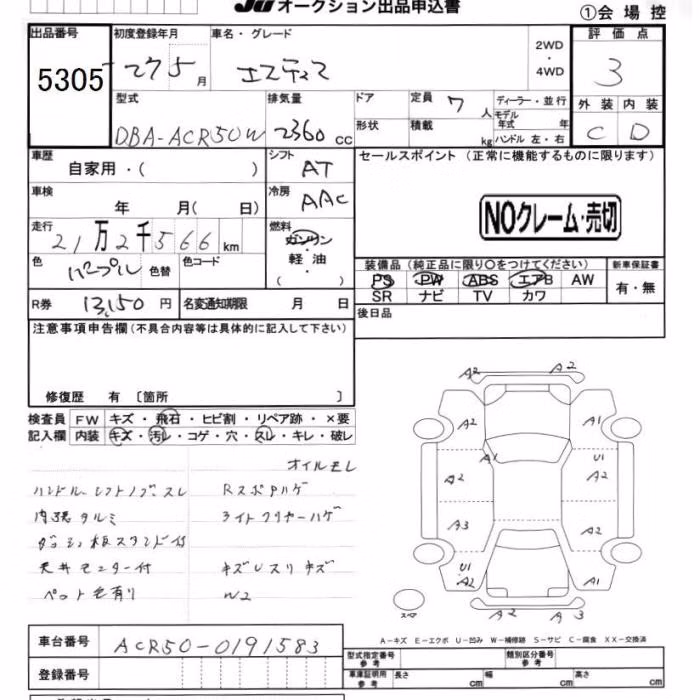 JU オークション出品申込書
①会場控
出品番号 初度登録年月 車名・グレード 評価点
5305 27 5月 エスティマ 2WD・4WD 3
型式 排気量 ドア 定員 7人 ディーラー・並行 外装 内装
DBA-ACR50W 2360cc 形状 積載 kg モデル年式 年 ハンドル 左・右 C D
車歴 自家用・( ) シフト AT セールスポイント (正常に機能するものに限ります)
車検 年 月( 日) 冷房 AAC
NOクレーム・売切
走行 21万2千566km 燃料 ガソリン・軽油
色 パープル 色替 色コード
装備品 (純正品に限り○をつけてください) 新車保証書
PS PW ABS エアB AW 有・無
SR ナビ TV カワ
R券 13,150円 名変通知期限 月 日 後日品
注意事項申告欄(不具合内容等は具体的に記入して下さい)
修復歴 有 〔箇所 〕
検査員 FW キズ・飛石・ヒビ割・リペア跡・×要
記入欄 内装 キズ・汚レ・コゲ・穴・スレ・キレ・破レ
オイルモレ
ハンドル シフトノブスレ Rスポアハゲ
内張タルミ ライトクリヤーハゲ
ダッシュ板スタンド付
天井モニター付 キズ Uスリキズ
ペット毛有り W2
A2 A2
A2 A1
A1 U1
A2 A2
A3 A2
U1
A2 A1
A2 A3
A-キズ E-エクボ U-凹み W-補修跡 S-サビ C-腐食 XX-交換済
車台番号 ACR50-0191583
型式指定番号 参考 類別区分番号 参考
登録番号
車庫証明用 参考 長さ cm 幅 cm 高さ cm